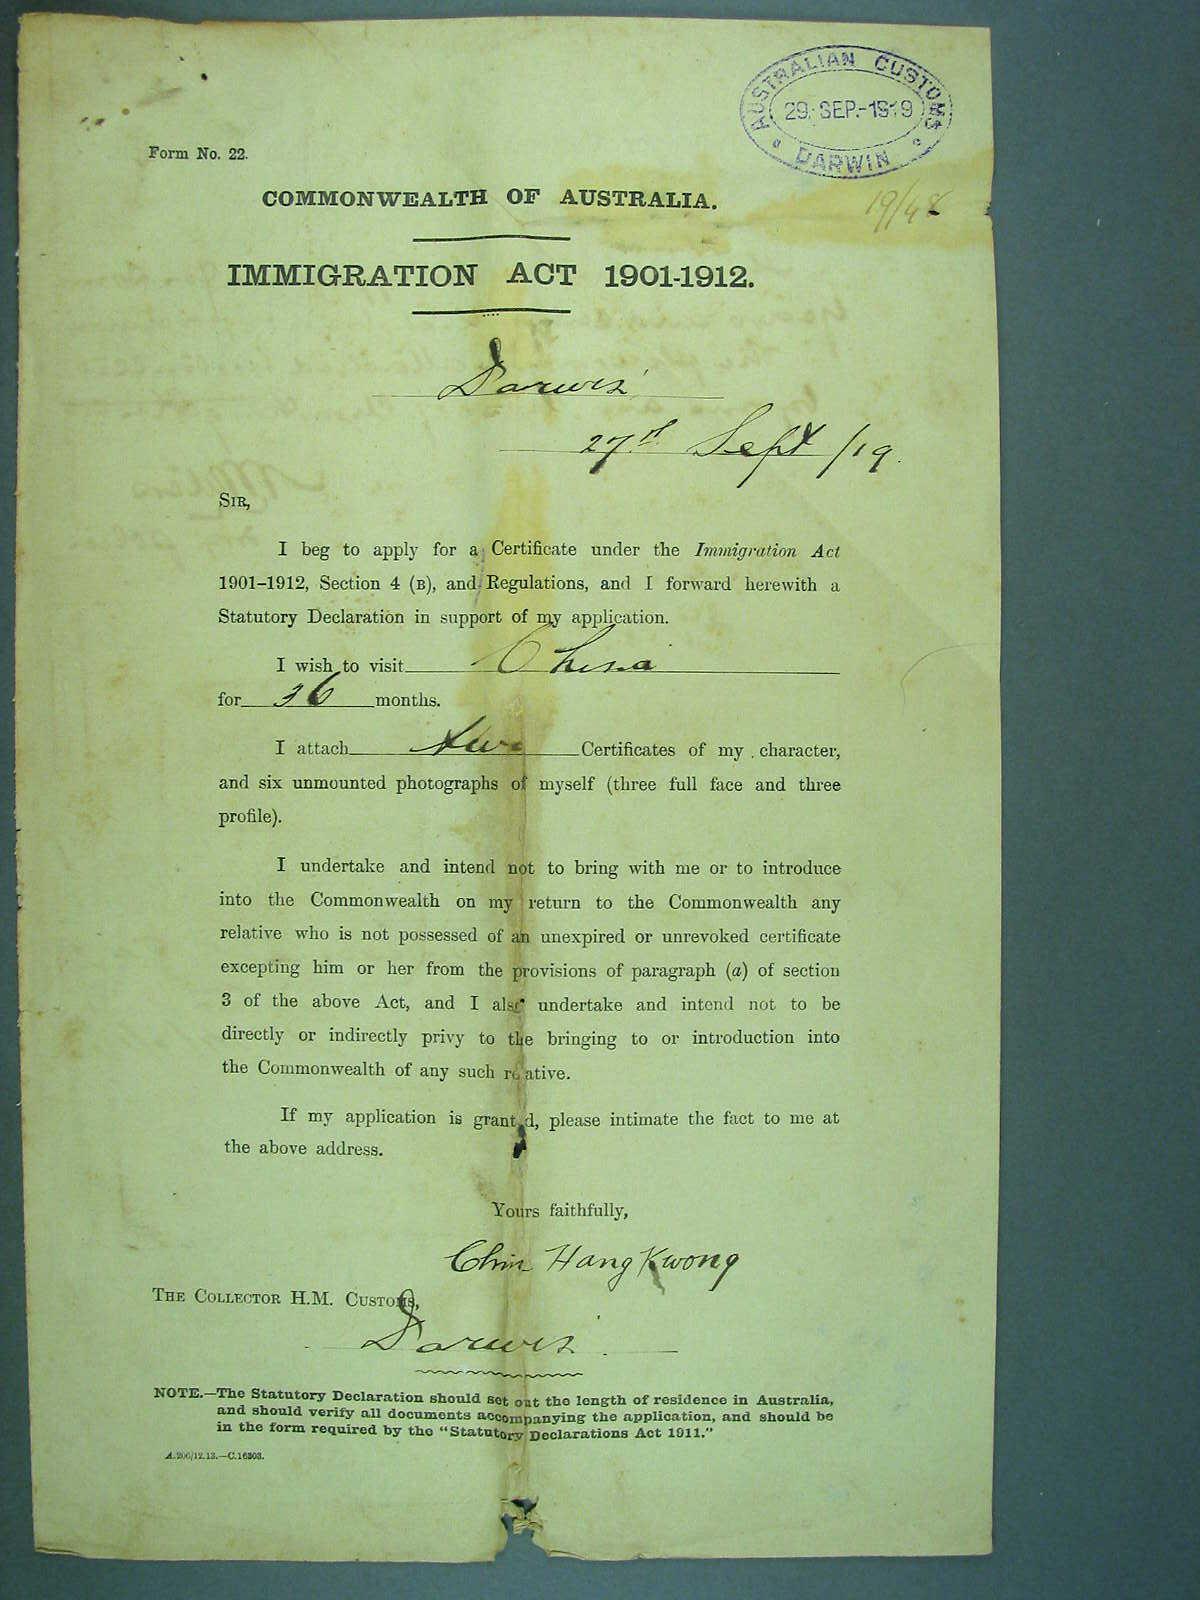 AUSTRALIAN CUSTOMS
29. SEP.-1919
DARWIN
Form No. 22.
19/48
COMMONWEALTH OF AUSTRALIA.
IMMIGRATION ACT 1901-1912.
Darwin
27th Sept /19.
SIR,
I beg to apply for a Certificate under the Immigration Act
1901–1912, Section 4 (B), and Regulations, and I forward herewith a
Statutory Declaration in support of my application.
I wish to visit China
for 36 months.
I attach two Certificates of my character,
and six unmounted photographs of myself (three full face and three
profile).
I undertake and intend not to bring with me or to introduce
into the Commonwealth on my return to the Commonwealth any
relative who is not possessed of an unexpired or unrevoked certificate
excepting him or her from the provisions of paragraph (a) of section
3 of the above Act, and I also undertake and intend not to be
directly or indirectly privy to the bringing to or introduction into
the Commonwealth of any such relative.
If my application is granted, please intimate the fact to me at
the above address.
Yours faithfully,
Chin Hang Kwong
THE COLLECTOR H.M. CUSTOMS,
Darwin.
NOTE.—The Statutory Declaration should set out the length of residence in Australia,
and should verify all documents accompanying the application, and should be
in the form required by the "Statutory Declarations Act 1911."
A.200/12.13.—C.16303.